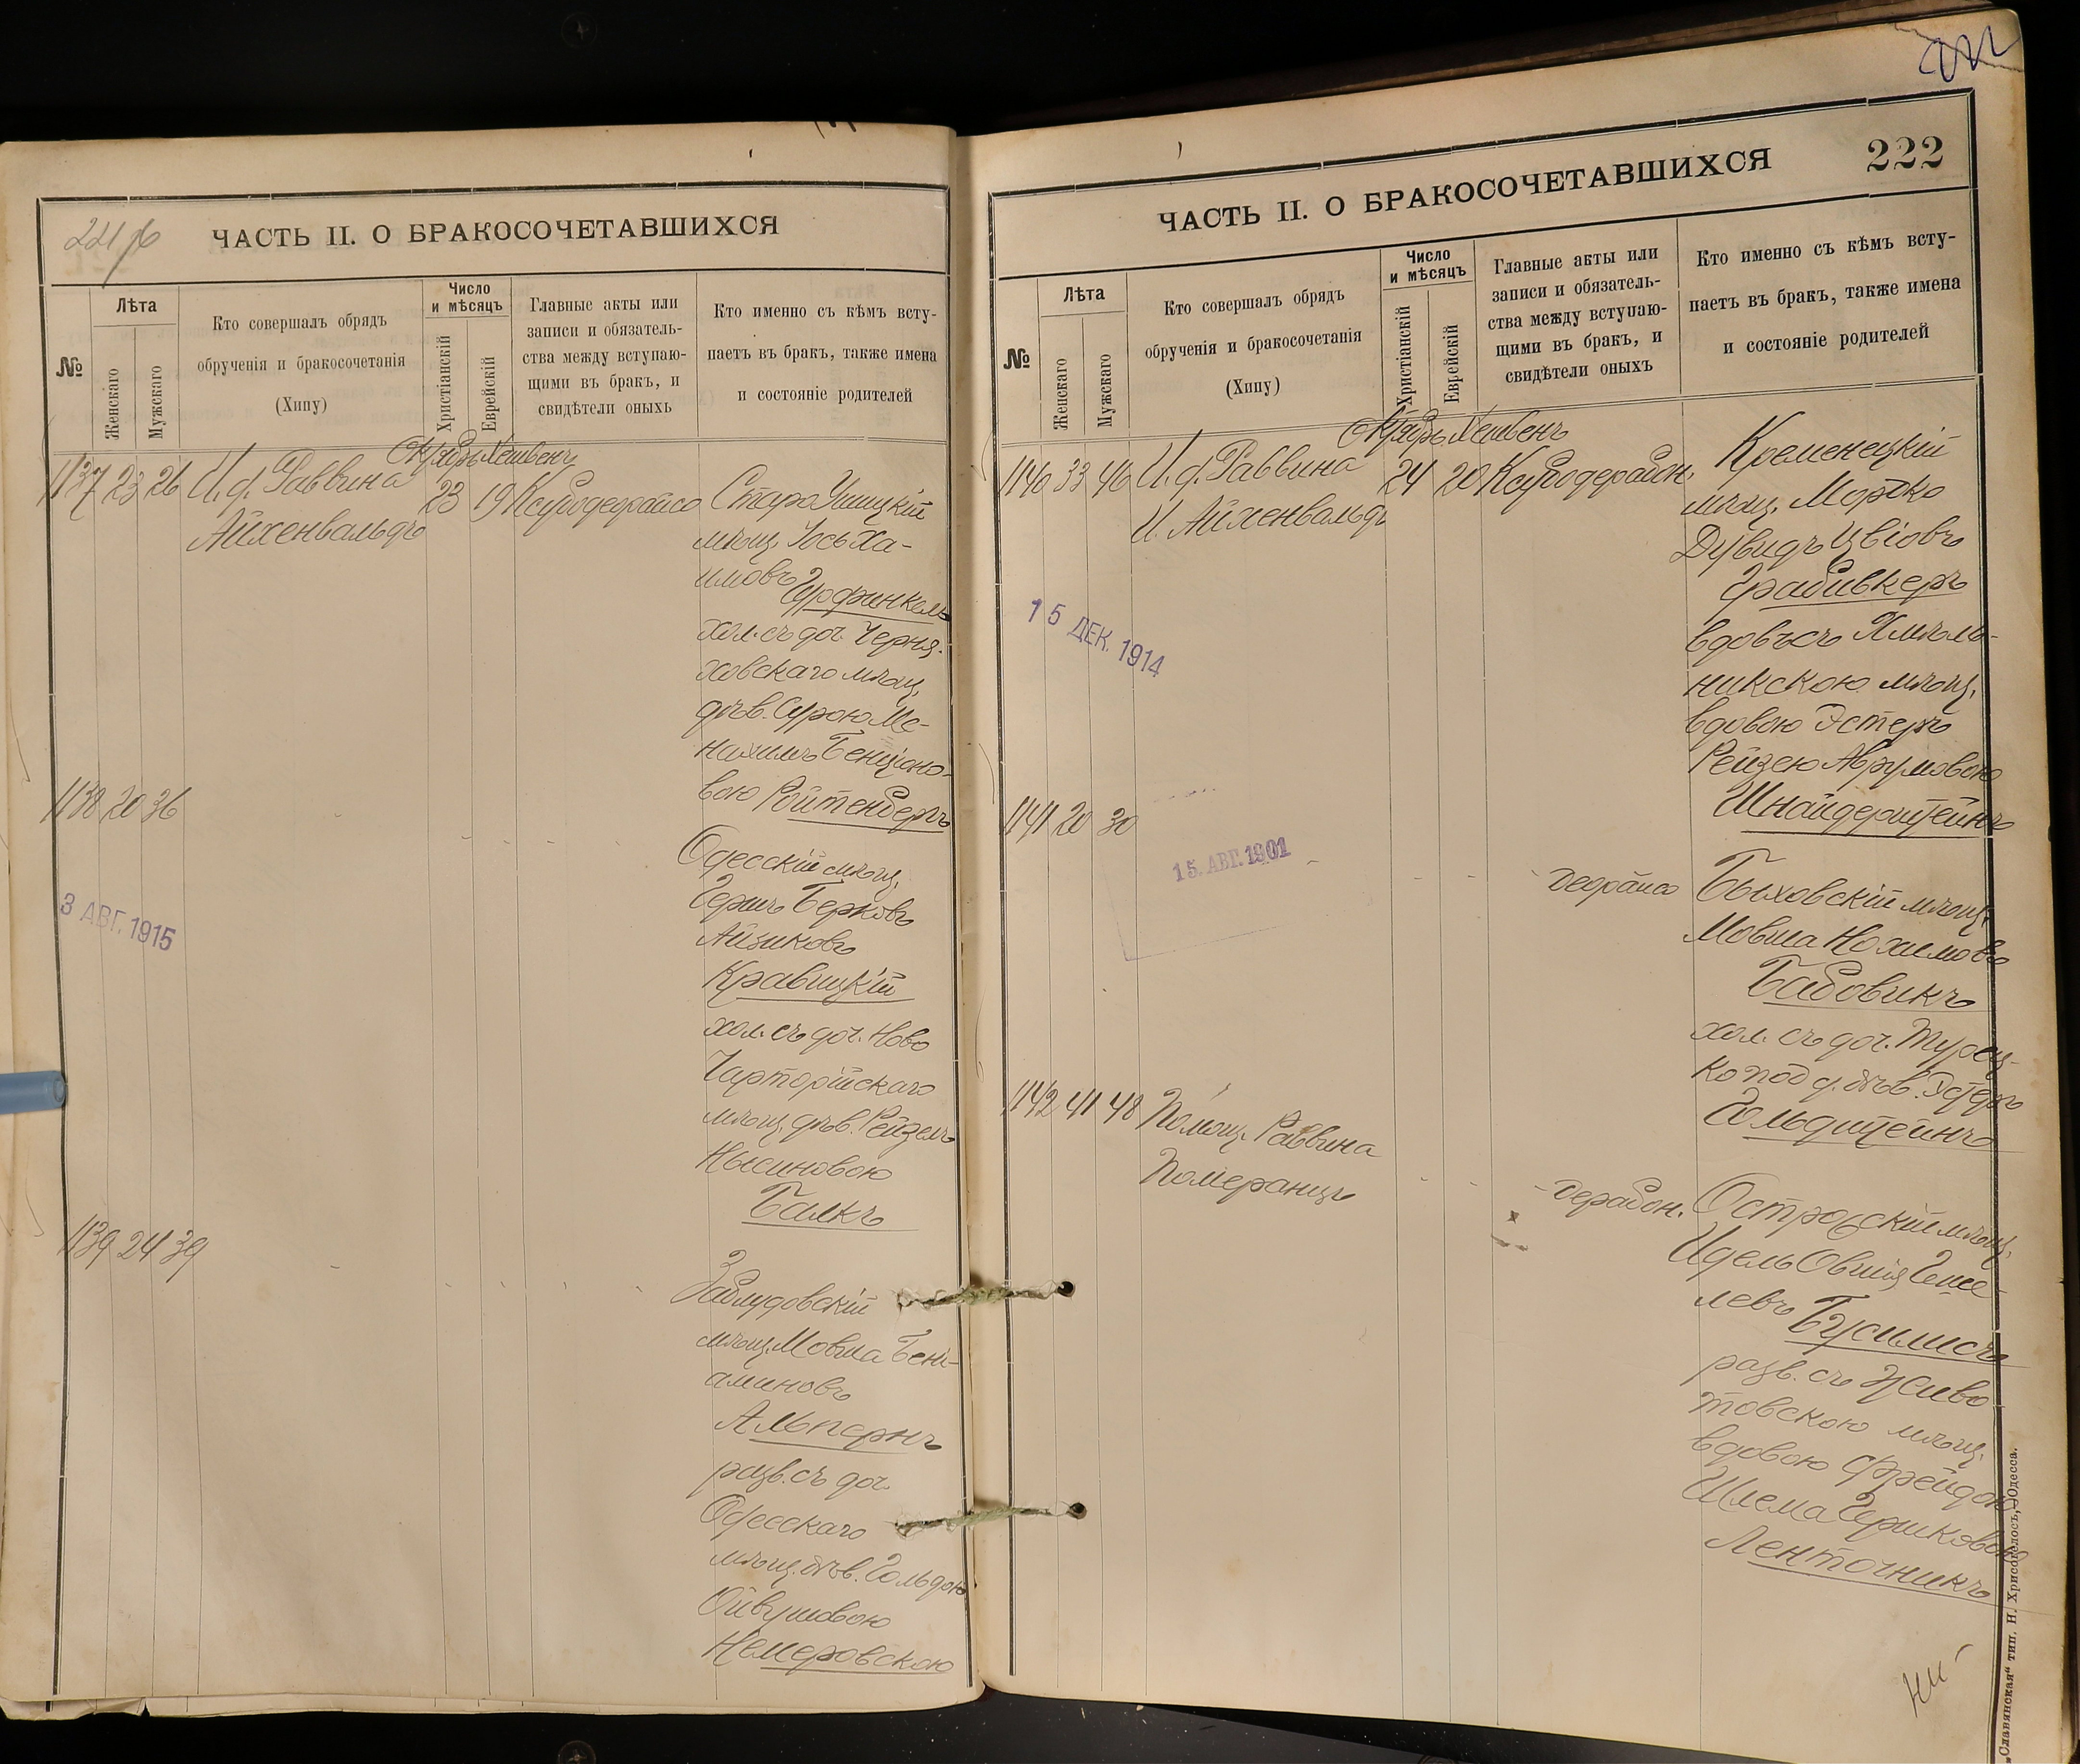 221 об
ЧАСТЬ II. О БРАКОСОЧЕТАВШИХСЯ
№
Лѣта
Женскаго
Мужскаго
Кто совершалъ обрядъ
обрученія и бракосочетанія
(Хипу)
Число
и мѣсяцъ
Христіанскій
Еврейскій
Главные акты или
записи и обязатель-
ства между вступаю-
щими въ бракъ, и
свидѣтели оныхъ
Кто именно съ кѣмъ всту-
паетъ въ бракъ, также имена
и состояніе родителей
Октябрь Хешвенъ
1137 23 26 И. д. Раввина 23 19
Айхенвальдъ
Старо Ушицкій
мѣщ. Іось Ха-
имовъ Гурфинкель
хол. съ доч. Черня-
ховскаго мѣщ.
дѣв. Сурою Ме-
нахимъ Бенціоно-
вою Ройтенбергъ
1138 20 36
Одесскій мѣщ.
Гершъ Берковъ
Айзиковъ
Кравицкій
хол. съ доч. Ново
Чарторійскаго
мѣщ. дѣв. Рейзелъ
Нысиновою
Балкъ
3 АВГ. 1915
1139 24 39
Заблудовскій
мѣщ. Мовша Бені-
аминовъ
Альпернъ
разв. съ доч.
Одесскаго
мѣщ. дѣв. Гольдою
Ойвушовою
Немеровскою
222
ЧАСТЬ II. О БРАКОСОЧЕТАВШИХСЯ
№
Лѣта
Женскаго
Мужскаго
Кто совершалъ обрядъ
обрученія и бракосочетанія
(Хипу)
Число
и мѣсяцъ
Христіанскій
Еврейскій
Главные акты или
записи и обязатель-
ства между вступаю-
щими въ бракъ, и
свидѣтели оныхъ
Кто именно съ кѣмъ всту-
паетъ въ бракъ, также имена
и состояніе родителей
Октябрь Хешвенъ
1140 33 46 И. д. Раввина 24 20
И. Айхенвальдъ
Кременецкій
мѣщ. Мортко
Дувидъ Цвіовъ
Грабивкеръ
вдовъ съ Хмѣль-
никскою мѣщ.
вдовою Эстеръ
Рейзею Аврумовою
Шнайдерштейнъ
15 ДЕК. 1914
1141 20 30
15. АВГ. 1901
Быховскій мѣщ.
Мовша Нохимовъ
Бабовикъ
хол. съ доч. Турец-
ко под д. дѣв. Эстеръ
Гольдштейнъ
1142 41 48 Помощ. Раввина
Померанцъ
Островскій мѣщ.
Идель Овшія Геше-
левъ Бусилисъ
разв. съ Живо
товскою мѣщ.
вдовою Фрейдою
Шлема Гершковою
Ленточникъ
„Славянская“ тип. Н. Хрисогелосъ, Одесса.